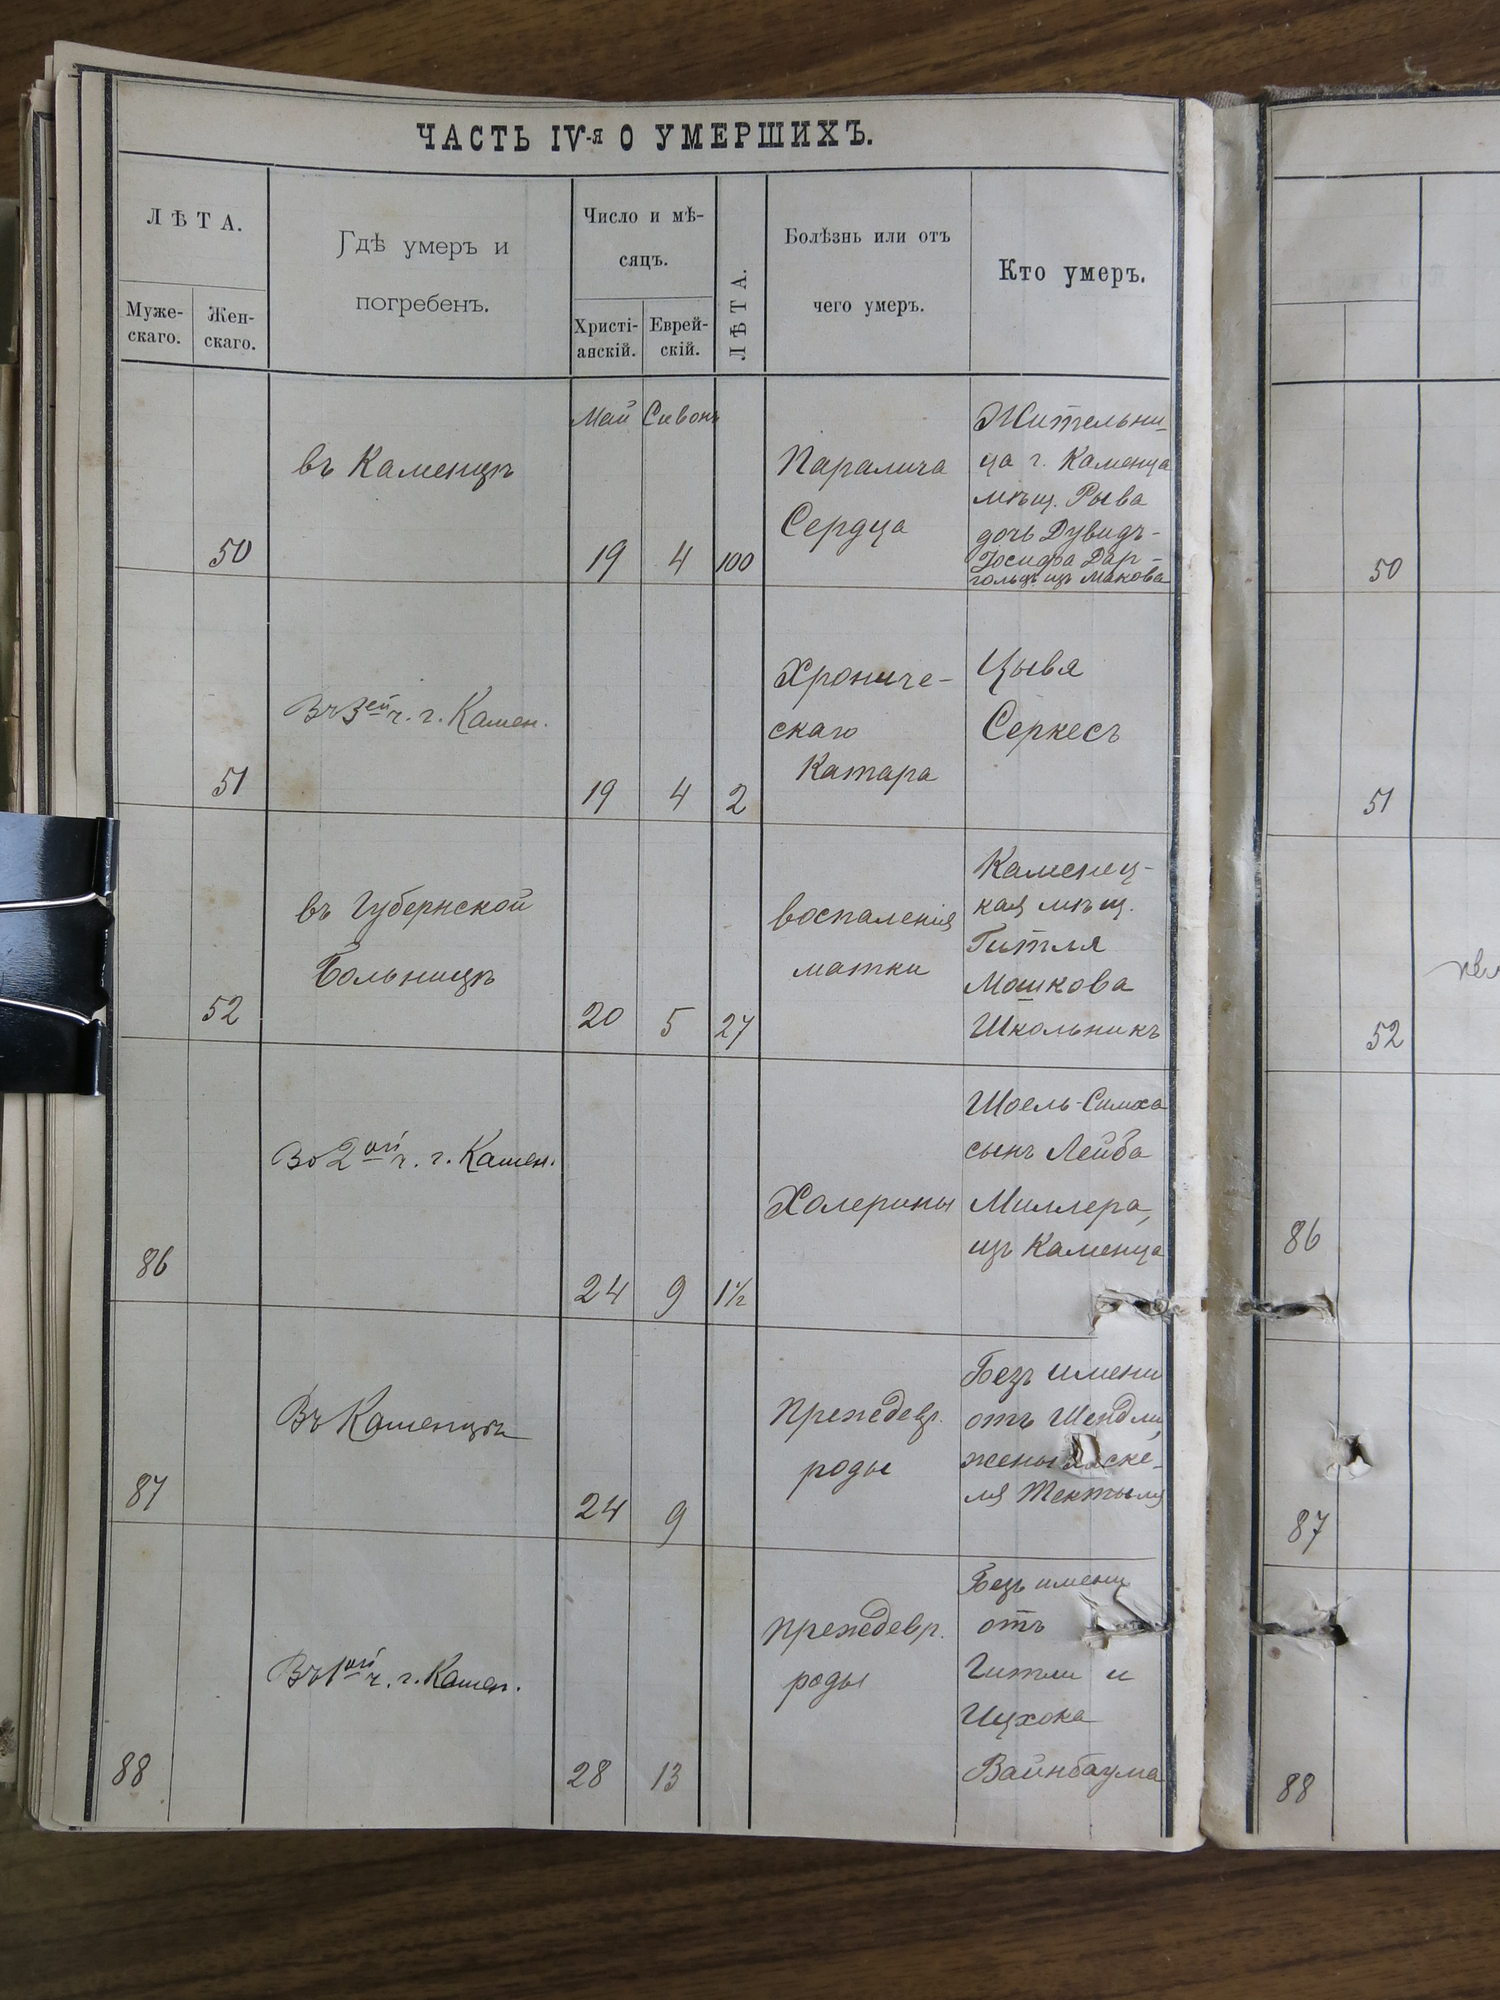 ЧАСТЬ IV-я О УМЕРШИХЪ.
ЛѢТА.
Муже-
скаго.
Жен-
скаго.
Гдѣ умеръ и
погребенъ.
Число и мѣ-
сяцъ.
Христі-
анскій.
Еврей-
скій.
ЛѢТА.
Болѣзнь или отъ
чего умеръ.
Кто умеръ.
50
въ Каменцѣ
Май Сивонъ
19 4 100
Паралича
Сердца
Жительни-
ца г. Каменца
мѣщ. Рыва
дочь Дувидъ-
Іосифа Дар-
гольцъ изъ Макова
50
51
Въ 3ей ч. г. Камен.
19 4 2
Хрониче-
скаго
Катара
Цывя
Серкесъ
51
52
въ Губернской
Больницѣ
20 5 27
воспаления
матки
Каменец-
кая мѣщ.
Гитля
Мошкова
Школьникъ
52
86
Во 2ой ч. г. Камен.
24 9 1½
Холерины
Шоель-Симха
сынъ Лейба
Миллера,
изъ Каменца
86
87
Въ Каменцѣ
24 9
преждевр.
роды
Безъ имени
отъ Шендли
жены
ля
87
88
Въ 1ой ч. г. Камен.
28 13
преждевр.
роды
Безъ имени
отъ
Гитли и
Ицхока
Вайнбаума
88